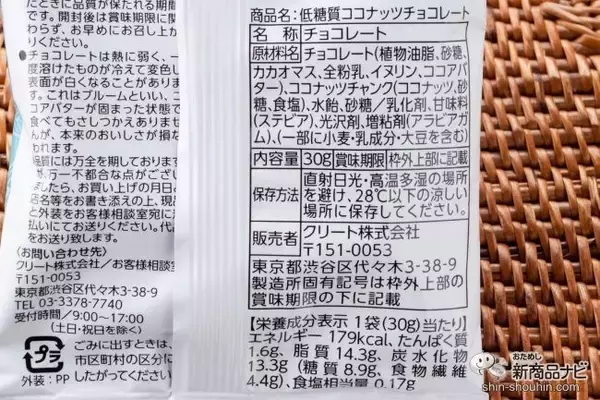 たときに品質が保たれる期間
です。開封後は賞味期限に関
わらず、お早めにお召し上が
りください。
●チョコレートは熱に弱く、一
度溶けたものが冷えて変色し
表面が白くなることがありま
す。これはブルームといい、コ
コアバターが固まった状態で
食べてもさしつかえありませ
んが、本来のおいしさが損な
われます。
品質には万全を期しております
万一不都合な点がござい
ましたら、お買い上げの月日と
店名等をお書き添えの上、現品
と外装をお客様相談室宛に
払いにてお送りください。代品
をお送り致します。
〈お問い合わせ先〉
クリート株式会社/お客様相談
〒151-0053
東京都渋谷区代々木3-38-9
TEL 03-3378-7740
受付時間/9:00〜17:00
(土日・祝日を除く)
プラ
外装:PP
ごみに出すときは、
市区町村の区分に
したがってください
商品名:低糖質ココナッツチョコレート
名 称 チョコレート
原材料名 チョコレート(植物油脂、砂糖、
カカオマス、全粉乳、イヌリン、ココアバ
ター)、ココナッツチャンク(ココナッツ、砂
糖、食塩)、水飴、砂糖/乳化剤、甘味料
(ステビア)、光沢剤、増粘剤(アラビアガ
ム)、(一部に小麦・乳成分・大豆を含む)
内容量 30g 賞味期限 枠外上部に記載
保存方法 直射日光・高温多湿の場所
を避け、28℃以下の涼しい
場所に保存してください。
販売者 クリート株式会社
〒151-0053
東京都渋谷区代々木3-38-9
製造所固有記号は枠外上部の
賞味期限の下に記載
【栄養成分表示 1袋(30g)当たり】
エネルギー 179kcal、たんぱく質
1.6g、脂質 14.3g、炭水化物
13.3g(糖質 8.9g、食物繊維
4.4g)、食塩相当量 0.17g
おためし
新商品ナビ
shin-shouhin.com